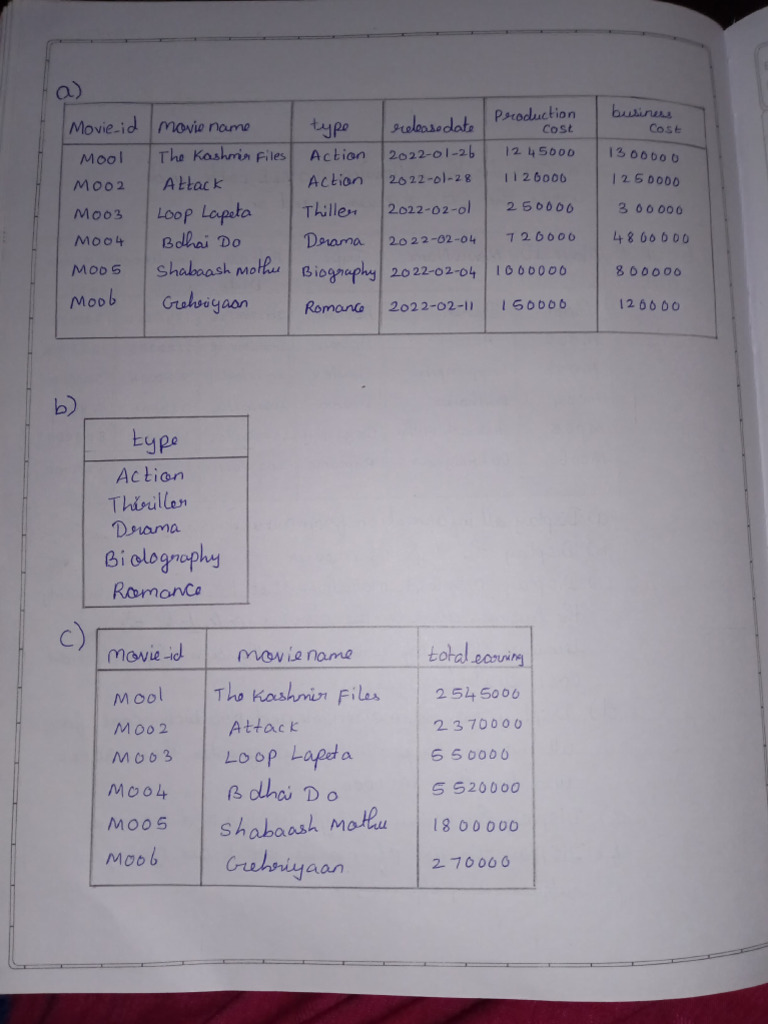 a)
Movie_id movie name type releasedate Production cost business cost
M001 The Kashmir Files Action 2022-01-26 1245000 1300000
M002 Attack Action 2022-01-28 1120000 1250000
M003 Loop Lapeta Thiller 2022-02-01 250000 300000
M004 Bdhai Do Drama 2022-02-04 720000 4800000
M005 Shabaash Mothu Biography 2022-02-04 1000000 800000
M006 Gehriyaan Romance 2022-02-11 150000 120000
b)
type
Action
Thiriller
Drama
Biolography
Romance
c)
movie_id moviename total_earning
M001 The Kashmir Files 2545000
M002 Attack 2370000
M003 Loop Lapeta 550000
M004 Bdhai Do 5520000
M005 Shabaash Mothu 1800000
M006 Gehriyaan 270000